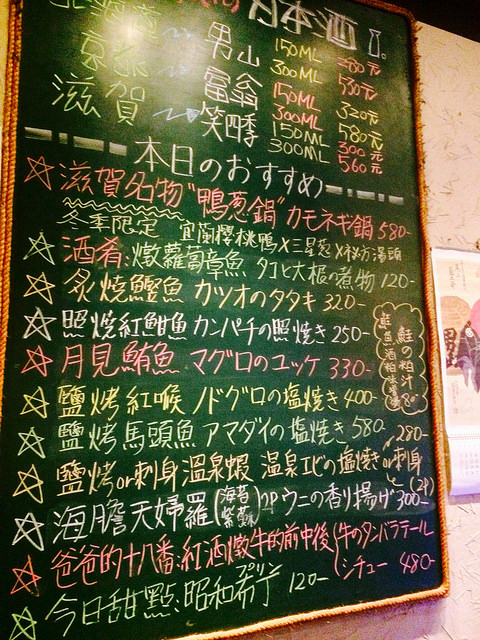 日本酒
男山 150ML 280元
300ML 530元
京都 富翁 150ML 320元
300ML 580元
滋賀 笑四季 150ML 300元
300ML 560元
本日のおすすめ
☆滋賀名物"鴨葱鍋"カモネギ鍋 580-
冬季限定 宜蘭櫻桃鴨×三星葱×秘方湯頭
☆酒肴:燉蘿蔔章魚 タコと大根の煮物 120-
☆炙燒鰹魚 カツオのタタキ 320-
☆照燒紅魽魚 カンパチの照焼き 250-
☆月見鮪魚 マグロのユッケ 330-
☆鹽烤紅喉 ノドグロの塩焼き 400-
☆鹽烤馬頭魚 アマダイの塩焼き 580-
鮭の粕汁
☆鹽烤or刺身溫泉蝦 温泉エビの塩焼きor刺身 280-
☆海膽天婦羅(海苔 紫蘇)2P ウニの香り揚げ 300-(2P)
☆爸爸的十八番:紅酒燉牛的前中後(牛のタン バラ テール シチュー 480-
☆今日甜點:昭和布丁 プリン 120-